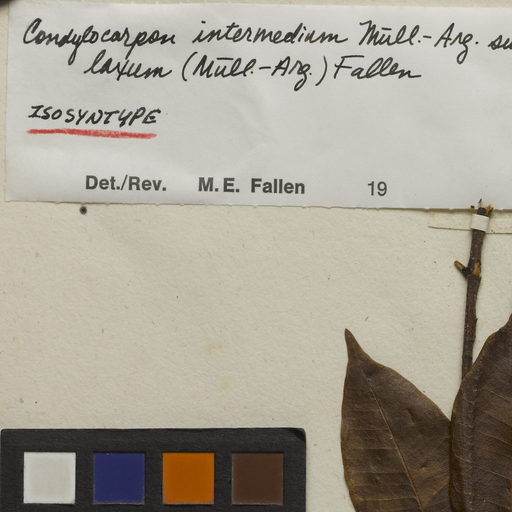 Condylocarpon intermedium Müll.-Arg. su
laxum (Müll.-Arg.) Fallen
ISOSYNTYPE
Det./Rev. M.E. Fallen 19